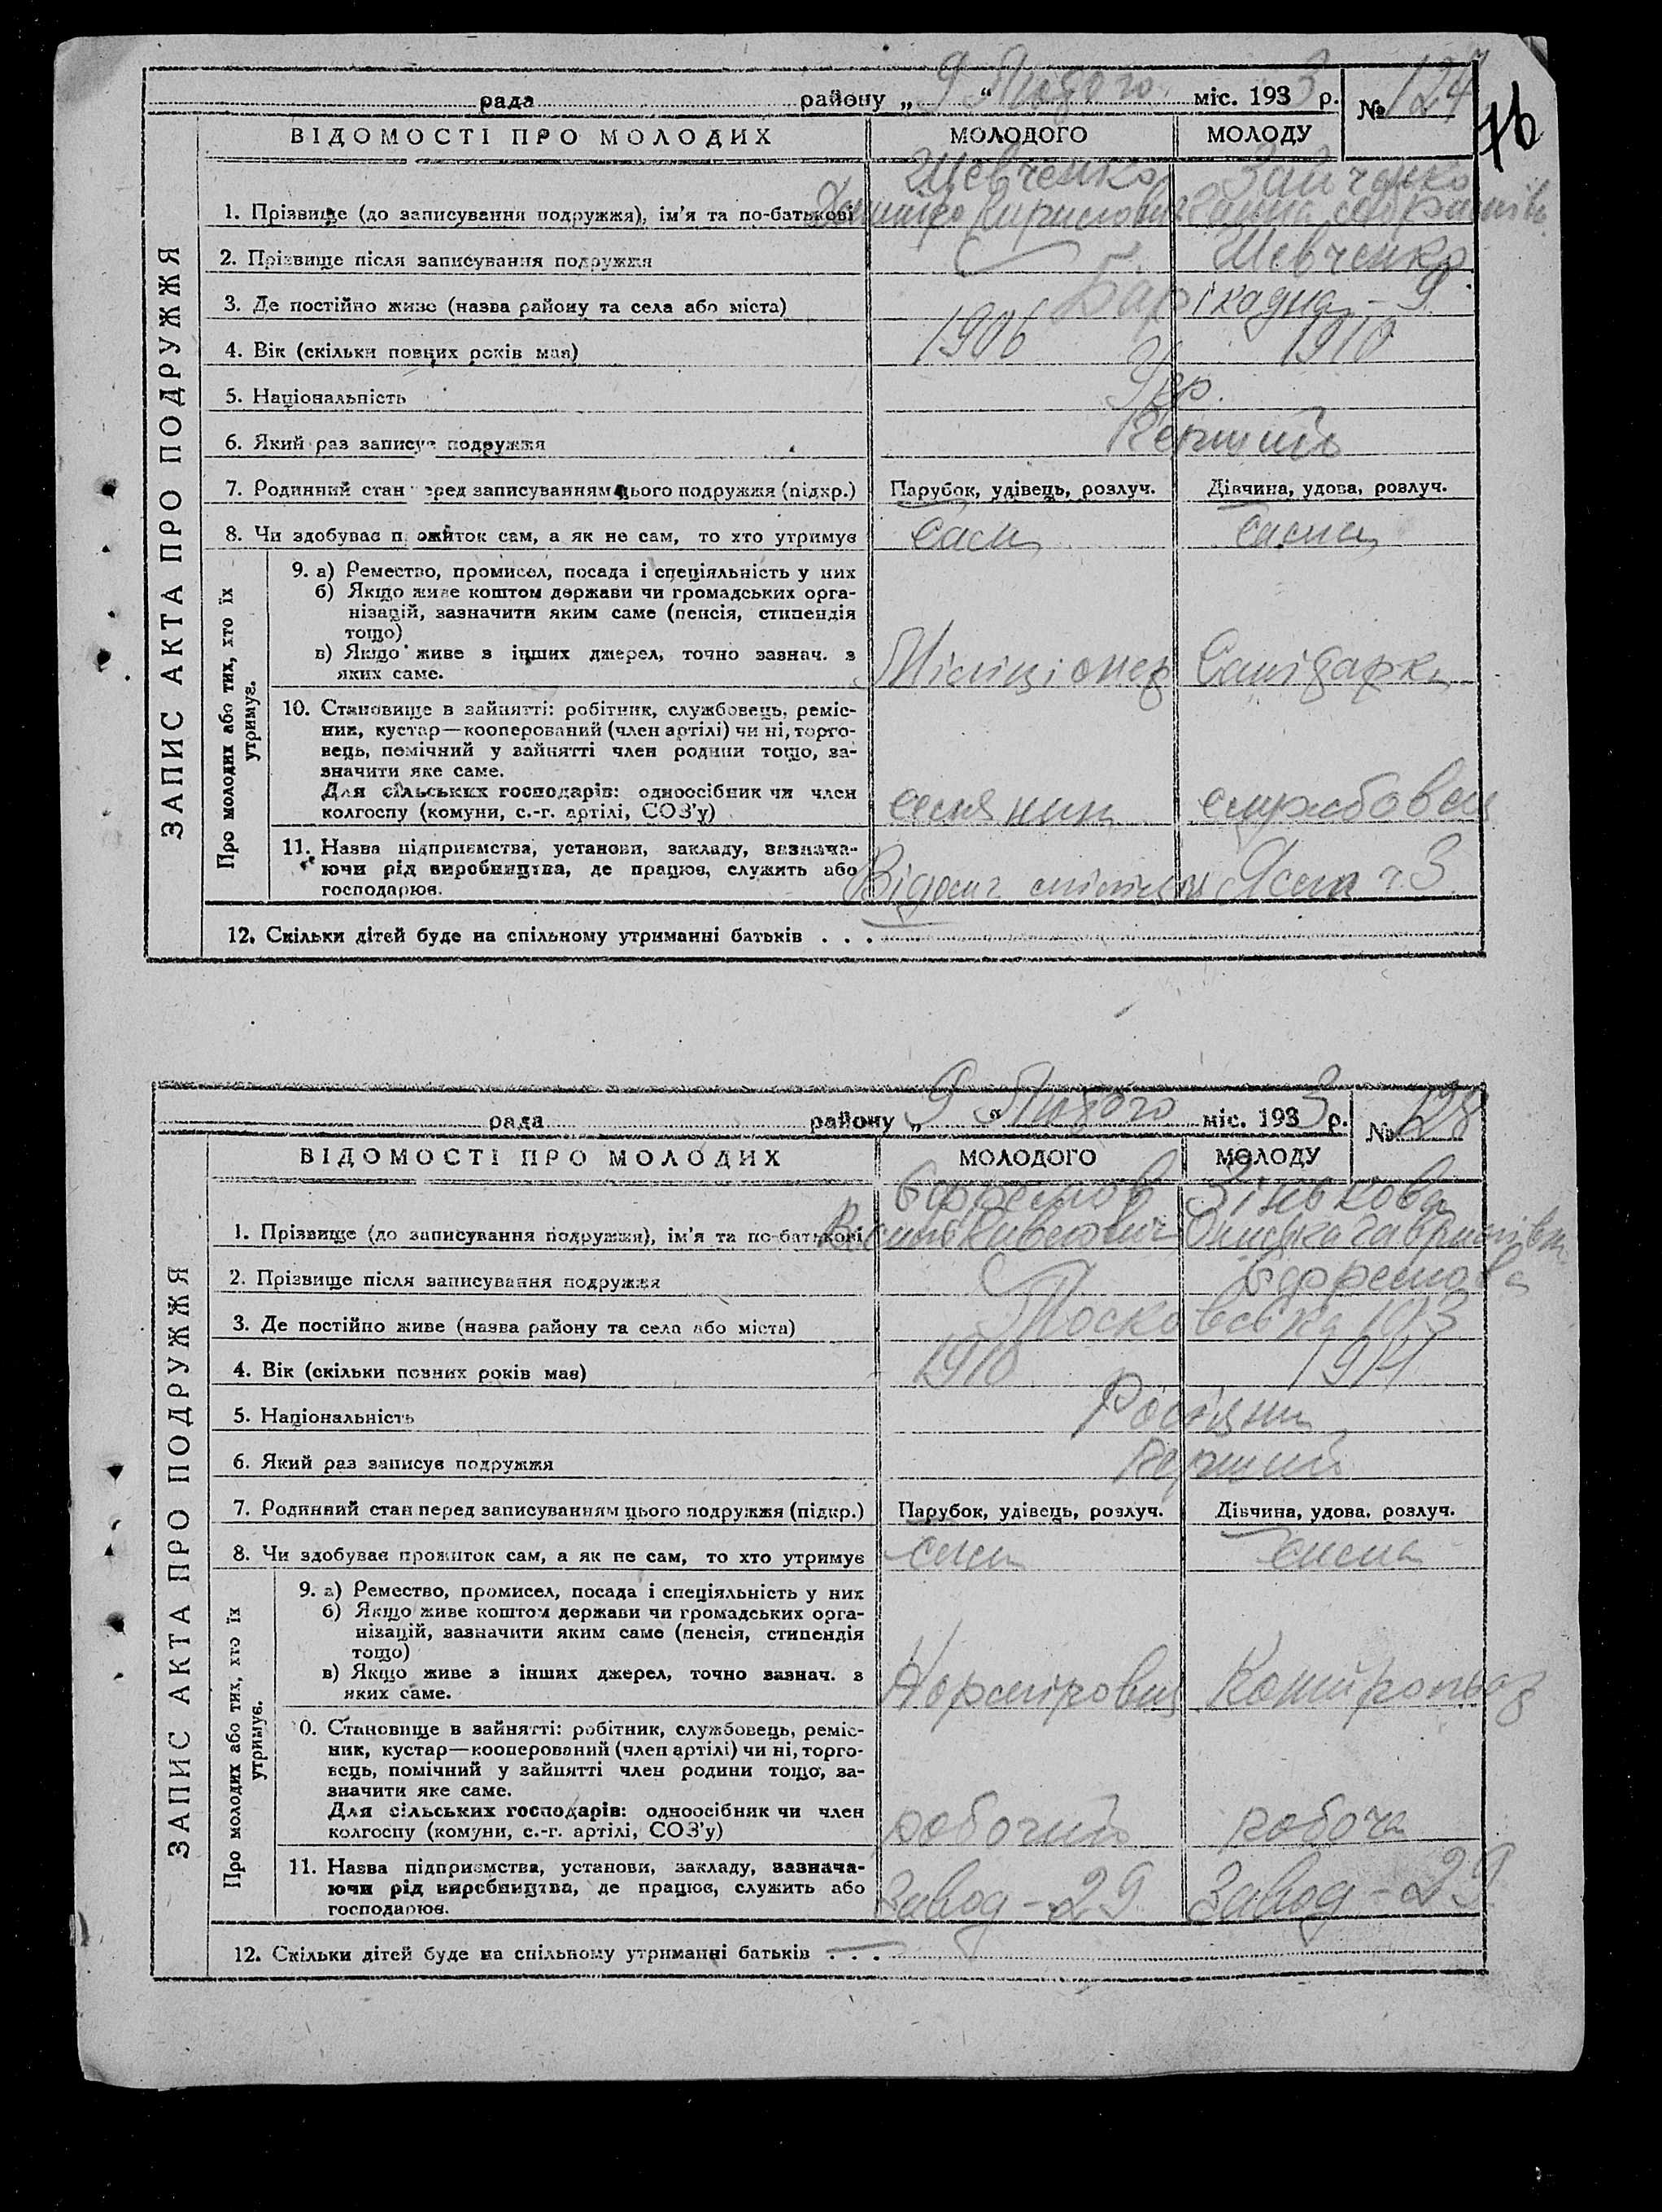 рада района „ 9 “ Лютого міс. 1933 р. № 127
76
ВІДОМОСТІ ПРО МОЛОДИХ МОЛОДОГО МОЛОДУ
Шевченко Зайченко
1. Прізвище (до записування подружжя), ім'я та по-батькові
2. Прізвище після записування подружжя Шевченко
3. Де постійно живе (назва району та села або міста) Барікадна - 9
4. Вік (скільки повних років має) 1906 1910
5. Національність Укр.
6. Який раз записує подружжя Перший
7. Родинний стан перед записуванням цього подружжя (підкр.) Парубок, удівець, розлуч. Дівчина, удова, розлуч.
8. Чи здобуває прожиток сам, а як не сам, то хто утримує сам сама
9. а) Ремество, промисел, посада і спеціяльність у них
б) Якщо живе коштом держави чи громадських орга-
нізацій, зазначити яким саме (пенсія, стипендія
тощо)
в) Якщо живе з інших джерел, точно зазнач. з
яких саме. Міліціонер Санітарка
10. Становище в зайнятті: робітник, службовець, реміс-
ник, кустар—кооперований (член артілі) чи ні, торго-
вець, помічний у зайнятті член родини тощо, за-
значити яке саме.
Для сільських господарів: одноосібник чи член
колгоспу (комуни, с.-г. артілі, СОЗ'у) селянин службовец
11. Назва підприємства, установи, закладу, зазнача-
ючи рід виробництва, де працює, служить або
господарює. міліціи Ясла ч. 3
12. Скільки дітей буде на спільному утриманні батьків . . .
ЗАПИС АКТА ПРО ПОДРУЖЖЯ
Про молодих або тих, хто їх
утримує.
рада району „ 9 “ Лютого міс. 1933 р. № 128
ВІДОМОСТІ ПРО МОЛОДИХ МОЛОДОГО МОЛОДУ
Єфремов Зінькова
1. Прізвище (до записування подружжя), ім'я та по-батькові
2. Прізвище після записування подружжя Єфремова
3. Де постійно живе (назва району та села або міста) Московська 103
4. Вік (скільки повних років має) 1910 1914
5. Національність Росіяни
6. Який раз записує подружжя перший
7. Родинний стан перед записуванням цього подружжя (підкр.) Парубок, удівець, розлуч. Дівчина, удова, розлуч.
8. Чи здобуває прожиток сам, а як не сам, то хто утримує сам сама
9. а) Ремество, промисел, посада і спеціяльність у них
б) Якщо живе коштом держави чи громадських орга-
нізацій, зазначити яким саме (пенсія, стипендія
тощо)
в) Якщо живе з інших джерел, точно зазнач. з
яких саме. Норміровщ
0. Становище в зайнятті: робітник, службовець, реміс-
ник, кустар—кооперований (член артілі) чи ні, торго-
вець, помічний у зайнятті член родини тощо, за-
значити яке саме.
Для сільських господарів: одноосібник чи член
колгоспу (комуни, с.-г. артілі, СОЗ'у) робочий робоча
11. Назва підприємства, установи, закладу, зазнача-
ючи рід виробництва, де працює, служить або
господарює. Завод - 29 Завод - 29
12. Скільки дітей буде на спільному утриманні батьків . . .
ЗАПИС АКТА ПРО ПОДРУЖЖЯ
Про молодих або тих, хто їх
утримує.